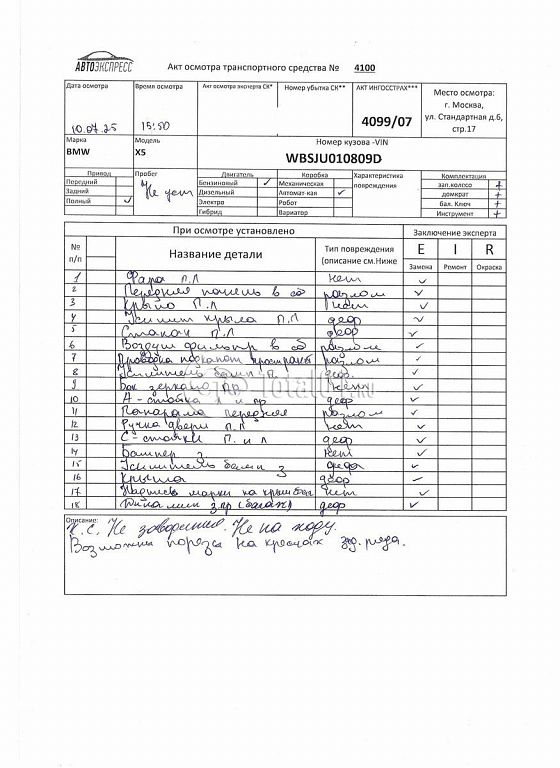 АВТОЭКСПРЕСС
Акт осмотра транспортного средства № 4100
Дата осмотра Время осмотра Акт осмотра эксперта СК* Номер убытка СК** АКТ ИНГОССТРАХ*** Место осмотра:
г. Москва,
ул. Стандартная д.6,
стр.17
10.07.25 15:50 4099/07
Марка Модель Номер кузова -VIN
BMW X5 WBSJU010809D
Привод Пробег Двигатель Коробка Характеристика повреждения Комплектация
Передний Не уст Бензиновый ✓ Механическая зап.колесо +
Задний Дизельный Автомат-кая ✓ домкрат +
Полный ✓ Электро Робот бал. Ключ +
Гибрид Вариатор Инструмент +
При осмотре установлено Заключение эксперта
№ п/п Название детали Тип повреждения (описание см.Ниже E I R
Замена Ремонт Окраска
1 Фара П.Л нет ✓
2 Передняя панель в сб разлом ✓
3 Крыло П.Л нет ✓
4 Усилит крыла П.Л деф ✓
5 Стакан П.Л деф ✓
6 Воздуш фильтр в сб разлом ✓
7 Проводка подкапот пространст разлом ✓
8 Усилитель бамп П. деф. ✓
9 Бок зеркало пр нет ✓
10 А-стойка л и пр деф ✓
11 Панорама передняя разлом ✓
12 Ручка двери П.Л нет ✓
13 С-стойки П. и л деф ✓
14 Бампер з нет ✓
15 Усилитель бамп з деф ✓
16 Крышка деф ✓
17 Надпись марки на крыш баг нет ✓
18 з.пр (багаж) деф ✓
Описание:
К.С. Не заводится. Не на ходу.
Возможны порезы на креслах зад. ряда.